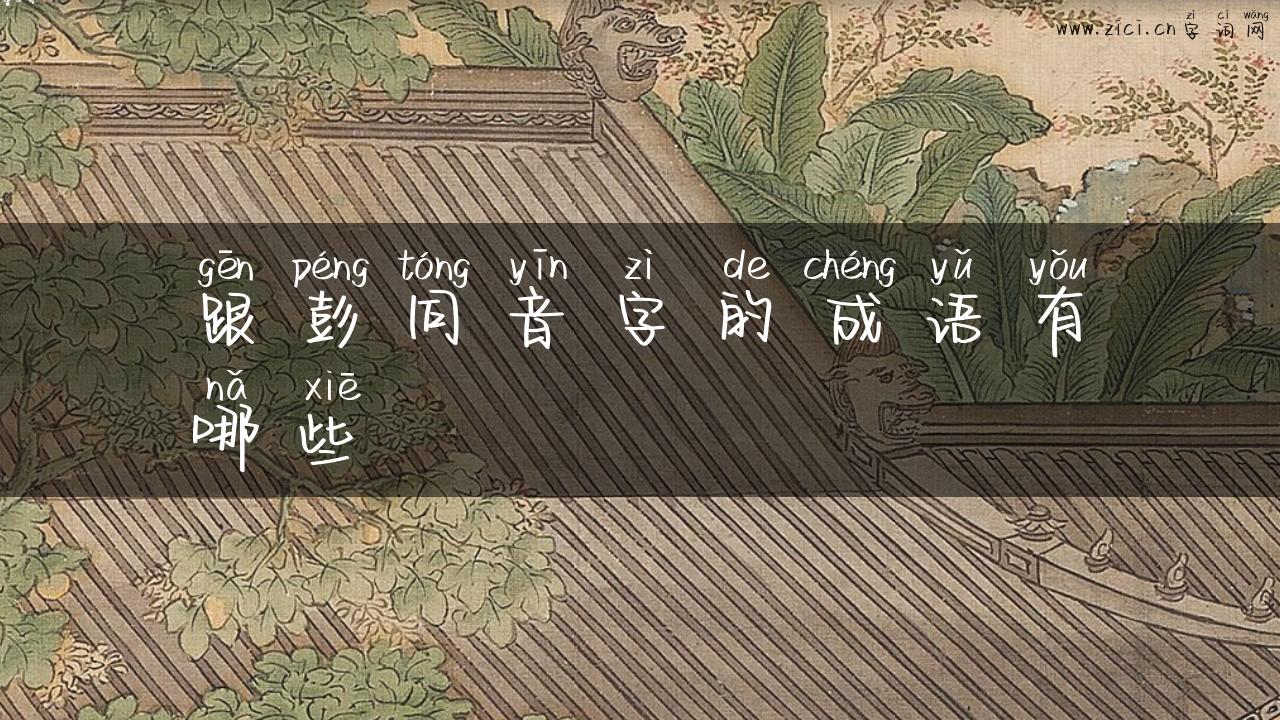 zì cí wǎng
www.zici.cn 字词网
gēn péng tóng yīn zì de chéng yǔ yǒu
跟彭同音字的成语有
nǎ xiē
哪些